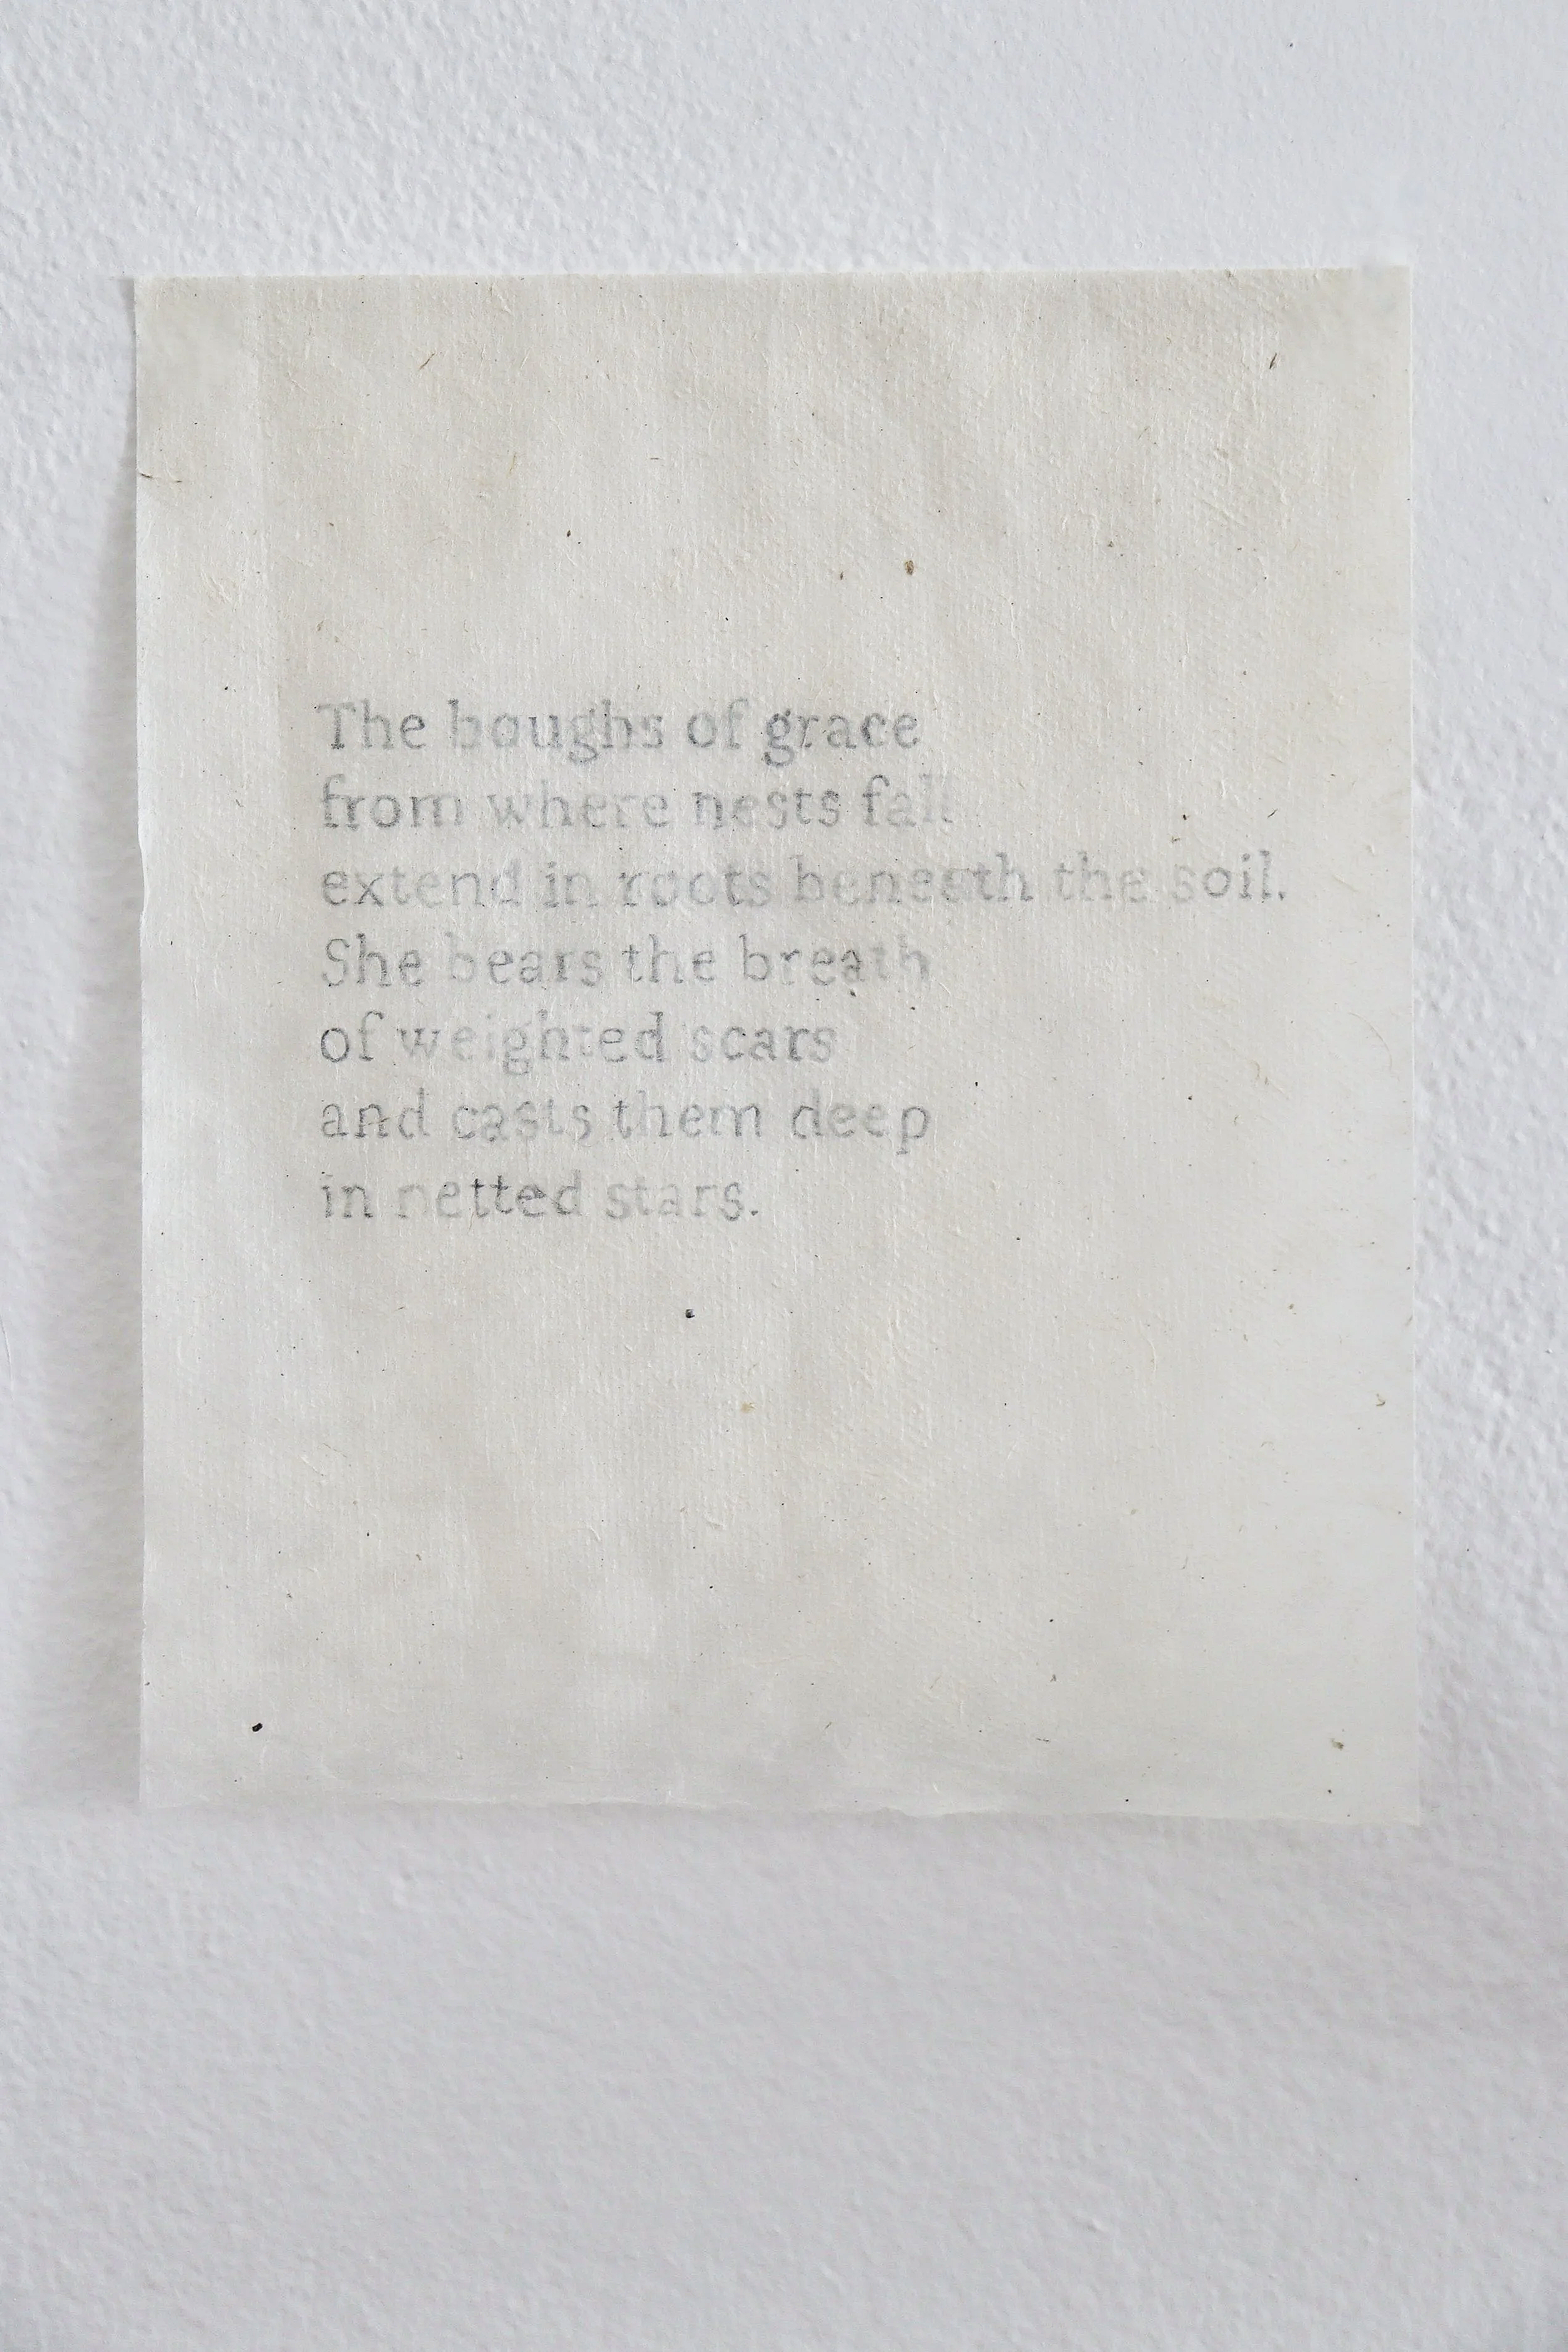 The boughs of grace
from where nests fall
extend in roots beneath the soil.
She bears the breath
of weighted scars
and casts them deep
in netted stars.